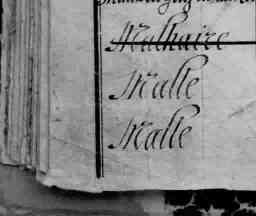 Malhaire
Malle
Malle